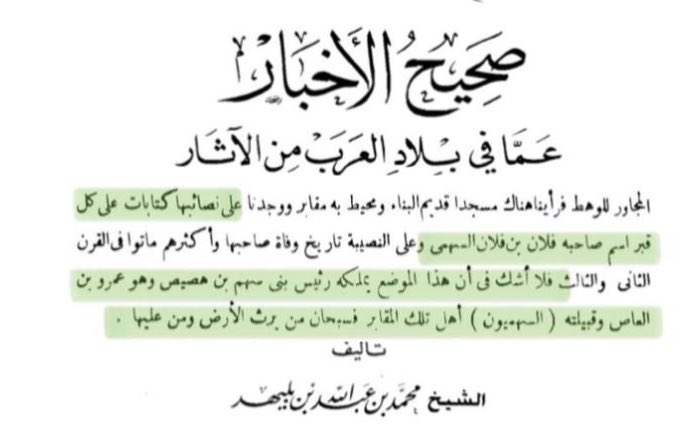 صَحِيحُ الأَخْبَارْ
عَمَّا فِي بِلَادِ العَرَبْ مِنَ الآثَار
المجاور للوهط فرأينا هناك مسجدا قديم البناء ومحيط به مقابر ووجدنا على نصائبها كتابات على كل
قبر اسم صاحبه فلان بن فلان السهمى وعلى النصيبة تاريخ وفاة صاحبها وأكثرهم ماتوا فى القرن
الثانى والثالث فلا أشك فى أن هذا الموضع يملكه رئيس بنى سهم بن هصيص وهو عمرو بن
العاص وقبيلته ( السهميون ) أهل تلك المقابر فسبحان من يرث الأرض ومن عليها .
تأليف
الشيخ محمّد بن عبد اللّه بن بليهد